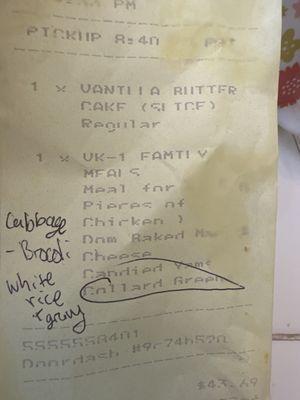 PM
PICKUP 8:40
1 x VANILLA BUTTER
CAKE (SLICE)
Regular
1 x VK-1 FAMILY
MEALS
Meal for
Pieces of
Chicken )
Dom Baked Ma
Cheese
Candied Yams
Collard Green
Cabbage
- Brocoli
White
rice
+ gravy
5555558401
Doordash
$43.69